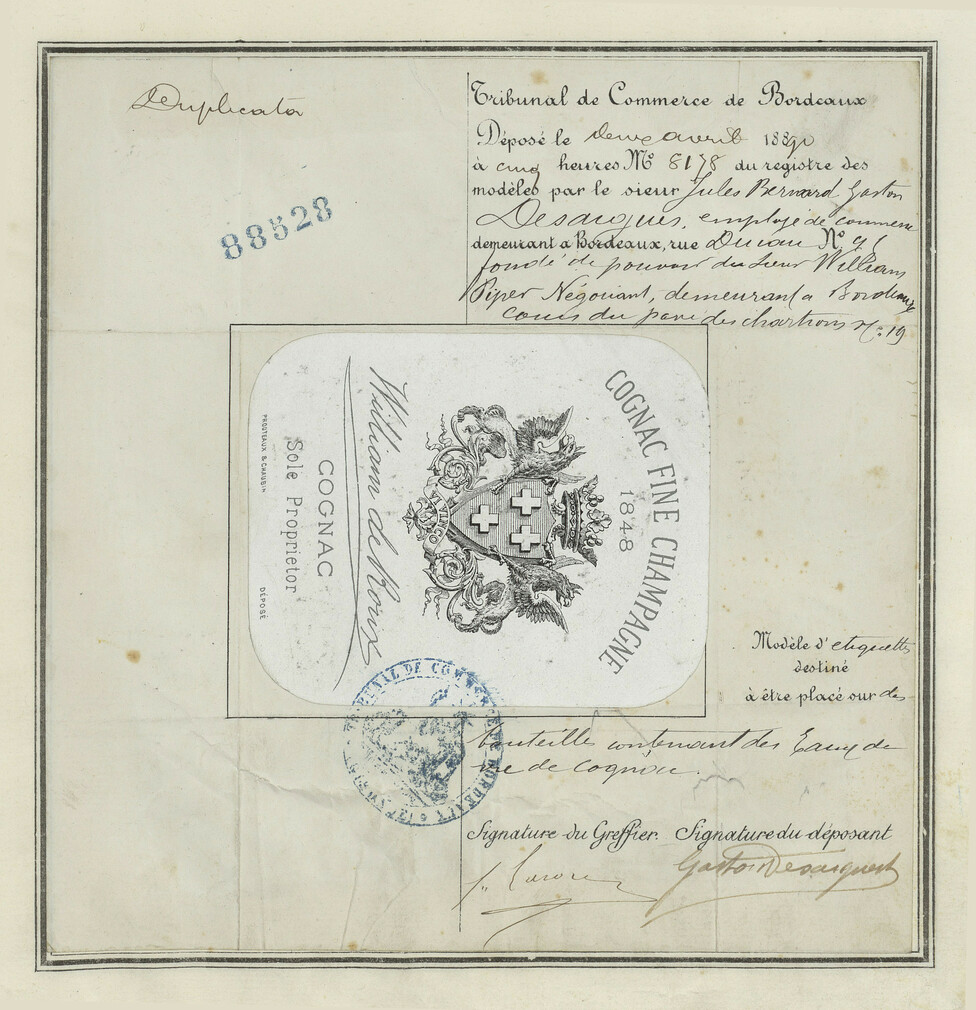 Duplicata
88528
Tribunal de Commerce de Bordeaux
Déposé le deux avril 1890
à cinq heures No 8178 du registre des
modèles par le sieur Jules Bernard Gaston
Desargues, employé de commerce
demeurant à Bordeaux, rue No 91
fondé de pouvoir du sieur William
Piper Négociant, demeurant à Bordeaux
cours du pavé des chartrons No 19
COGNAC FINE CHAMPAGNE
1848
William de
COGNAC
Sole Proprietor
PROUTEAUX & CHAUBIN
DÉPOSÉ
TRIBUNAL DE COMMERCE DE BORDEAUX
Modèle d'etiquettes
destiné
à être placé sur des
bouteilles contenant des Eaux de
vie de cognac.
Signature du Greffier. Signature du déposant